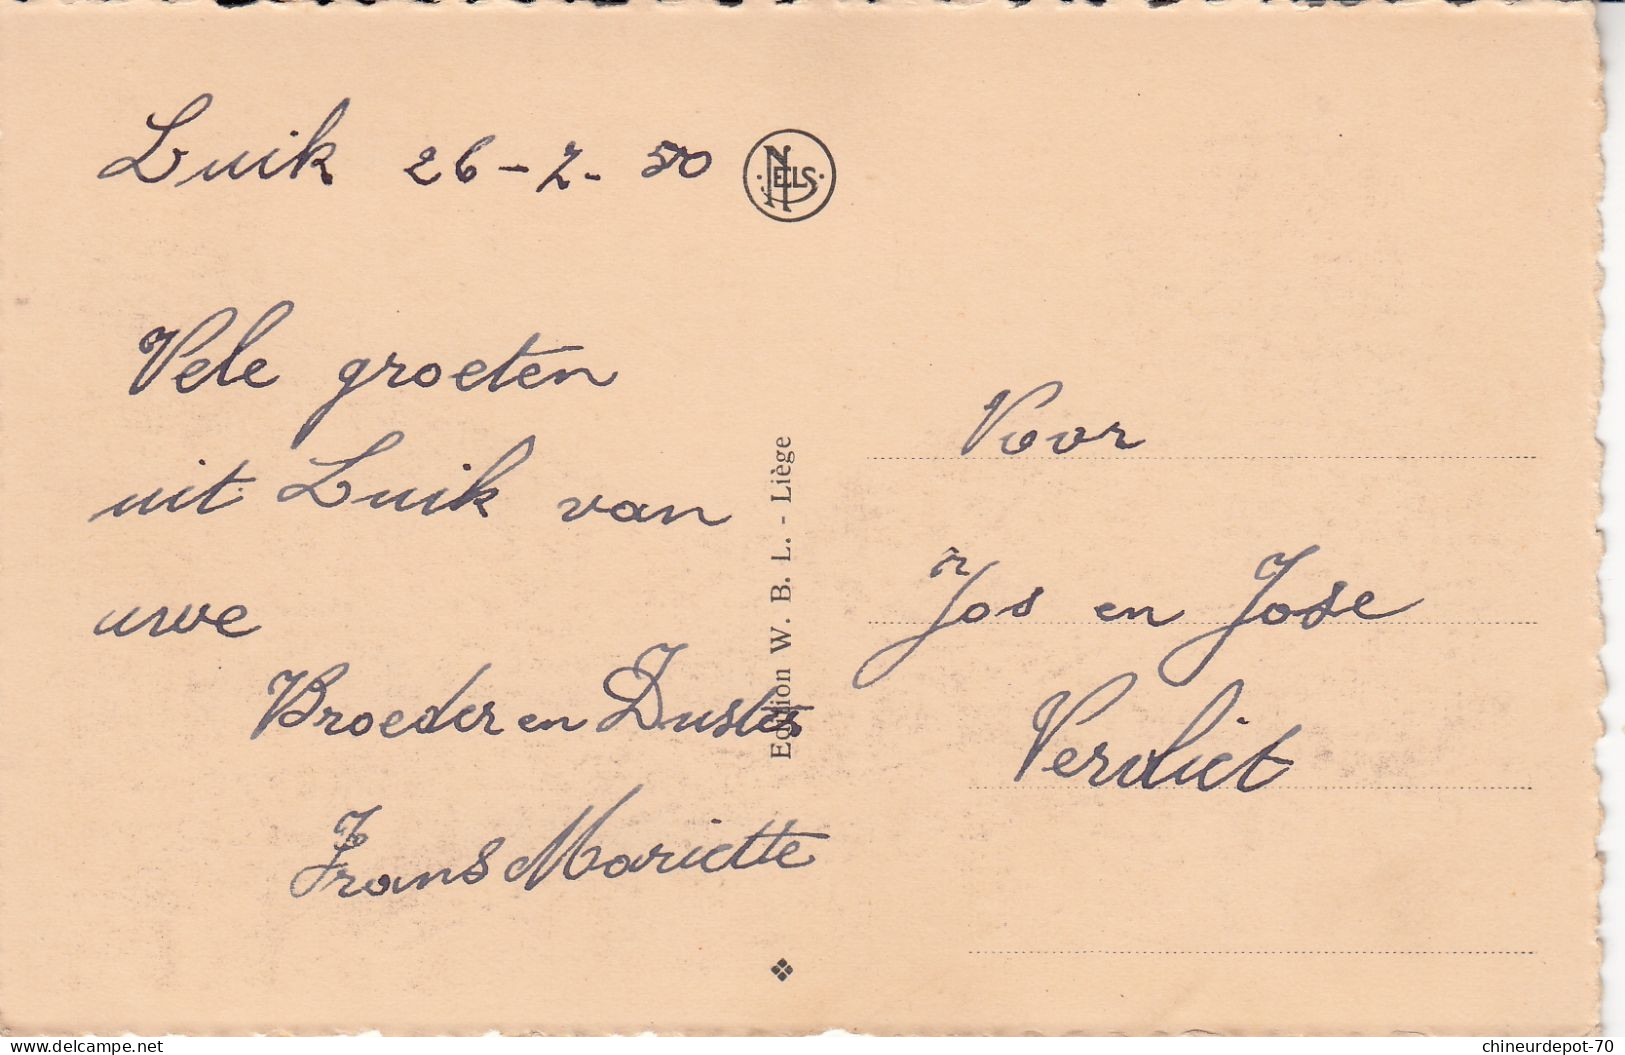 Luik 26-7-50
NELS
Vele groeten
uit Luik van
uwe
Broeder en Zuster
Frans Mariette
Edition W. B. L. - Liège
Voor
Jos en Jose
Verdict
chineurdepot-70